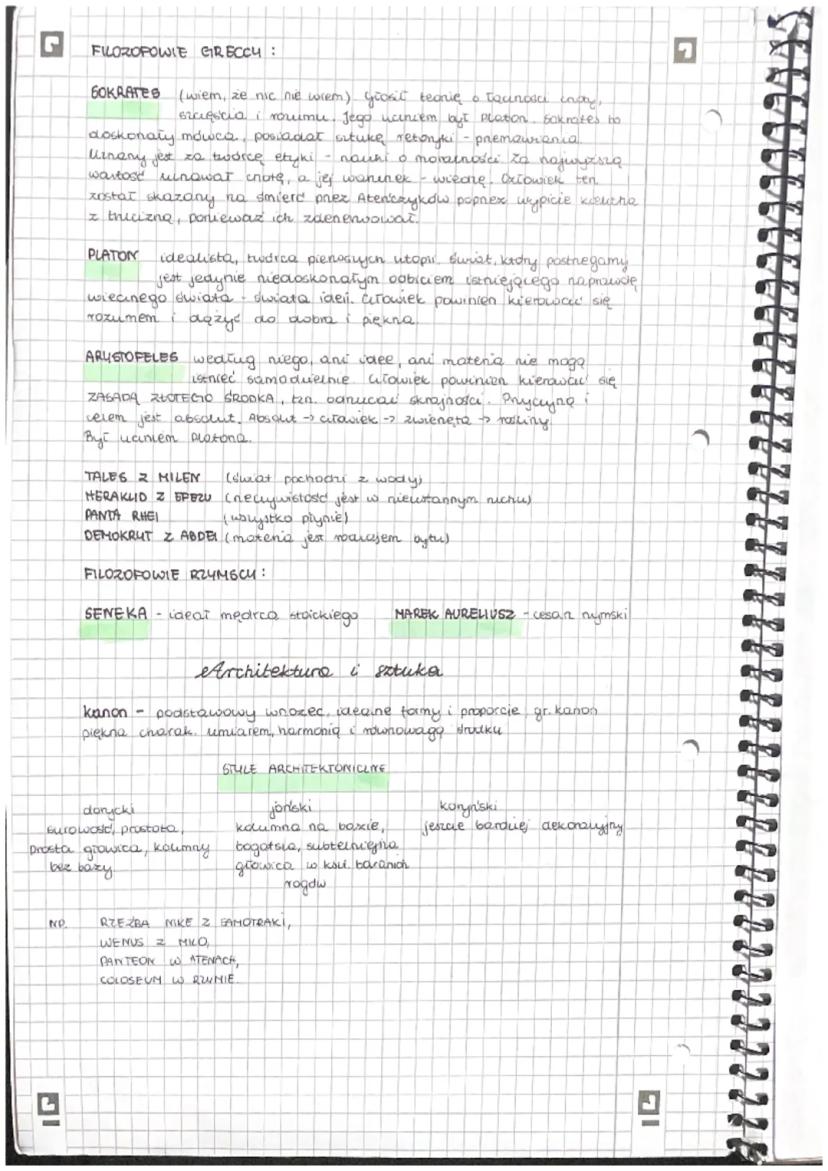 FILOZOFOWIE GRECCY :
SOKRATES (wiem, że nic nie wiem). Głosił teorię o łączności cnoty,
szczęścia i rozumu. Jego uczniem był Platon. Sokrates to
doskonały mówca, posiadał sztukę retoryki - przemawiania.
Uznany jest za twórcę etyki - nauki o moralności. Za najwyższą
wartość uznawał cnotę, a jej warunek - wiedzę. Człowiek ten
został skazany na śmierć przez Ateńczyków poprzez wypicie kielicha
z trucizną, ponieważ ich zdenerwował.
PLATON idealista, twórca pierwszych utopii. Świat, który postrzegamy
jest jedynie niedoskonałym odbiciem istniejącego naprawdę
wiecznego świata - świata idei. Człowiek powinien kierować się
rozumem i dążyć do dobra i piękna.
ARYSTOFELES według niego, ani idee, ani materia nie mogą
istnieć samodzielnie. Człowiek powinien kierować się
ZASADĄ ZŁOTEGO ŚRODKA, tzn. odrzucać skrajności. Przyczyną i
celem jest absolut. Absolut → człowiek → zwierzęta → rośliny
Był uczniem Platona.
TALES Z MILEN (świat pochodzi z wody)
HERAKLID Z EFEZU (rzeczywistość jest w nieustannym ruchu)
PANTA RHEI (wszystko płynie)
DEMOKRYT Z ABDEI (materia jest rodzajem bytu)
FILOZOFOWIE RZYMSCY :
SENEKA - ideał mędrca stoickiego MAREK AURELIUSZ - cesarz rzymski
Architektura i sztuka
kanon - podstawowy wzorzec, idealne formy i proporcje, gr. kanon
piękna charak. umiarem, harmonią i równowagą środku
STYLE ARCHITEKTONICZNE
dorycki joński koryński
surowość, prostota, kolumna na bazie, jeszcze bardziej dekoracyjny
prosta głowica, kolumny bogatsza, subtelniejsza
bez bazy głowica w kszt. baranich
rogów
NP. RZEŹBA NIKE Z SAMOTRAKI,
WENUS Z MILO,
PANTEON W ATENACH,
COLOSEUM W RZYMIE.